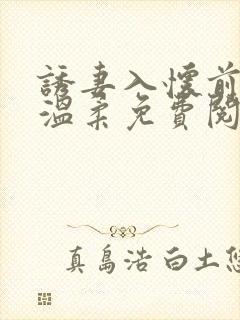 誘妻入懷前
溫柔免費閱
真島浩 白土悠